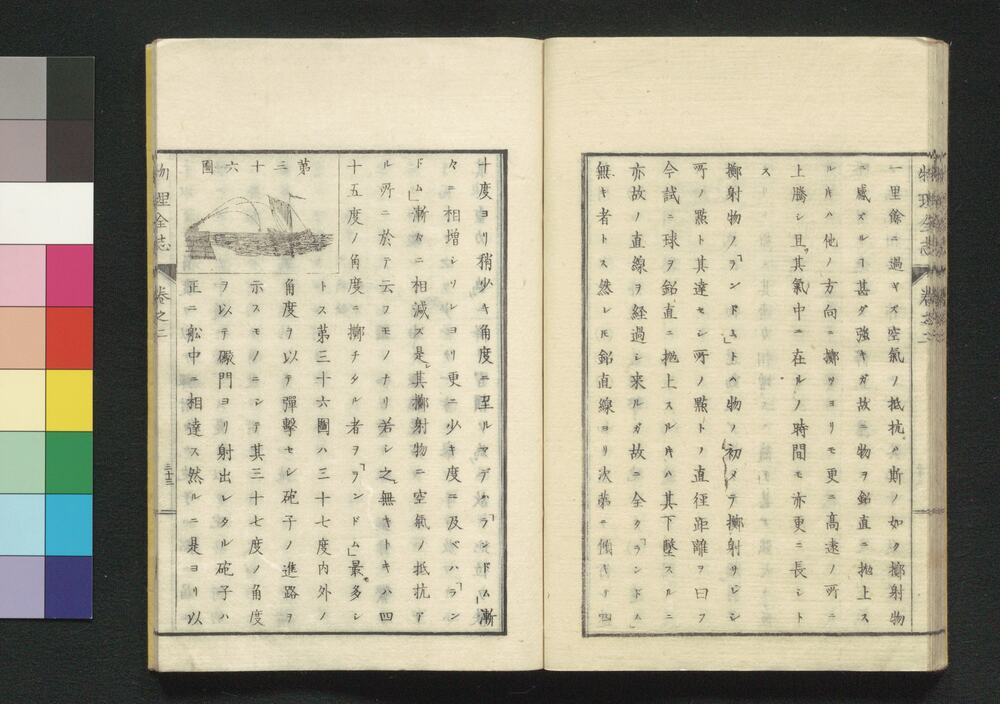 一里餘ニ過ギズ空氣ノ抵抗ノ斯ノ如ク擲射物
ニ感ズルヿ甚ダ強キガ故ニ物ヲ鉛直ニ抛上ス
ルキハ他ノ方向ニ擲ツヨリモ更ニ高遠ノ所ニ
上騰シ且其氣中ニ在ルノ時間モ亦更ニ長シト
ス
擲射物ノ「ランドム」トハ物ノ初メテ擲射サレシ
所ノ點ト其達セシ所ノ點トノ直徑距離ヲ曰フ
今試ニ球ヲ鉛直ニ抛上スルキハ其下墜スルニ
亦故ノ直線ヲ経過シ来ルガ故ニ全ク「ランドム」
無キ者トス然レ𪜈鉛直線ヨリ次第ニ傾キテ四
物理全志
卷之二
十度ヨリ稍少キ角度ニ至ルマデハ「ランドム」漸
々ニ相增シソレヨリ更ニ少キ度ニ及べハ「ラン
ドム」漸次ニ相減ズ是其擲射物ニ空氣ノ抵抗ア
ル所ニ於テ云フモノナリ若シ之無キトキハ四
十五度ノ角度ニ擲チタル者ヲ「ランドム」最多シ
トス第三十六圖ハ三十七度内外ノ
角度ヲ以テ彈擊セシ砲子ノ進路ヲ
示スモノニシテ其三十七度ノ角度
ヲ以テ礮門ヨリ射出レタル砲子ハ
正ニ船中ニ相達ス然ルニ是ヨリ以
第三十六圖
物理全志
卷之二
三十三